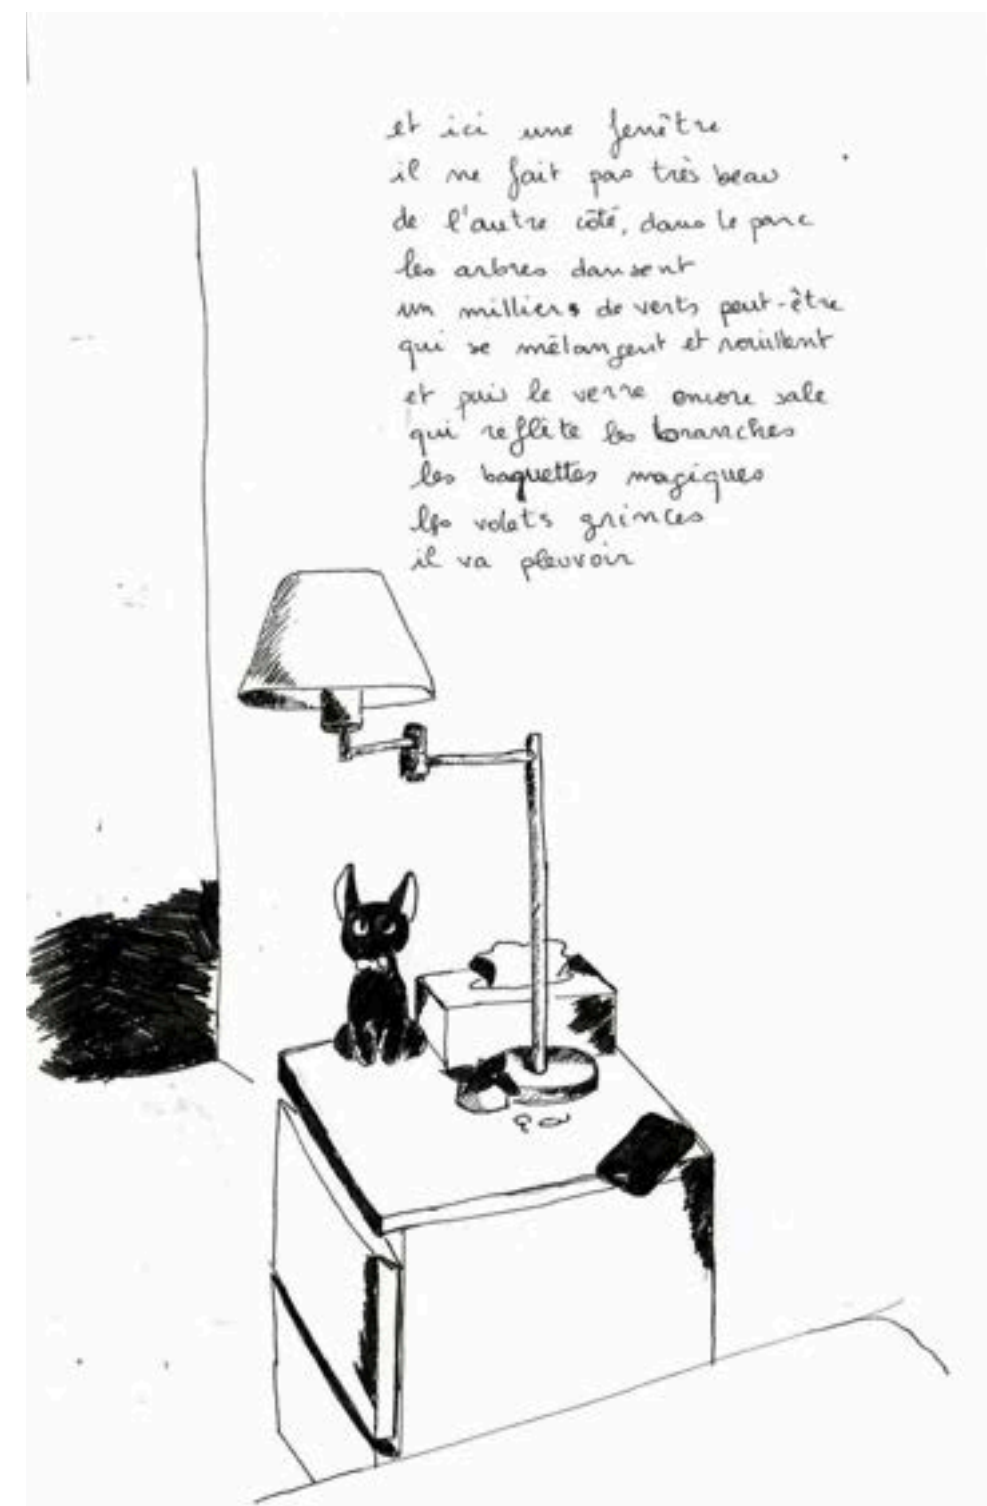 et ici une fenêtre
il ne fait pas très beau
de l'autre côté, dans le parc
les arbres dansent
un milliers de verts peut-être
qui se mélangent et rouillent
et puis le verre encore sale
qui reflète les branches
les baguettes magiques
les volets grinces
il va pleuvoir